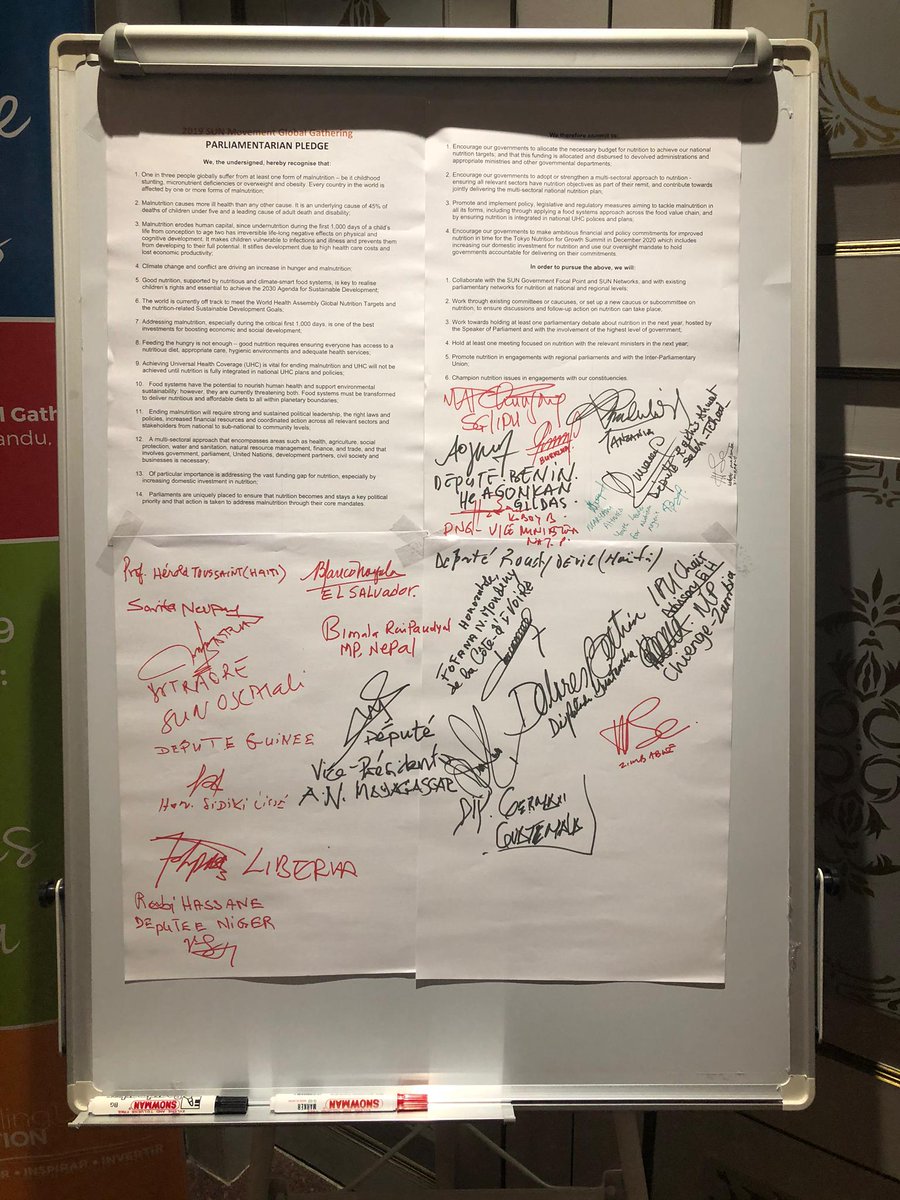 2019 SUN Movement Global Gathering
PARLIAMENTARIAN PLEDGE
We, the undersigned, hereby recognise that:
1. One in three people globally suffer from at least one form of malnutrition – be it childhood
stunting, micronutrient deficiencies or overweight and obesity. Every country in the world is
affected by one or more forms of malnutrition;
2. Malnutrition causes more ill health than any other cause. It is an underlying cause of 45% of
deaths of children under five and a leading cause of adult death and disability;
3. Malnutrition erodes human capital, since undernutrition during the first 1,000 days of a child's
life from conception to age two has irreversible life-long negative effects on physical and
cognitive development. It makes children vulnerable to infections and illness and prevents them
from developing to their full potential. It stifles development due to high health care costs and
lost economic productivity;
4. Climate change and conflict are driving an increase in hunger and malnutrition;
5. Good nutrition, supported by nutritious and climate-smart food systems, is key to realise
children's rights and essential to achieve the 2030 Agenda for Sustainable Development;
6. The world is currently off track to meet the World Health Assembly Global Nutrition Targets and
the nutrition-related Sustainable Development Goals;
7. Addressing malnutrition, especially during the critical first 1,000 days, is one of the best
investments for boosting economic and social development;
8. Feeding the hungry is not enough – good nutrition requires ensuring everyone has access to a
nutritious diet, appropriate care, hygienic environments and adequate health services;
9. Achieving Universal Health Coverage (UHC) is vital for ending malnutrition and UHC will not be
achieved until nutrition is fully integrated in national UHC plans and policies;
10. Food systems have the potential to nourish human health and support environmental
sustainability; however, they are currently threatening both. Food systems must be transformed
to deliver nutritious and affordable diets to all within planetary boundaries;
11. Ending malnutrition will require strong and sustained political leadership, the right laws and
policies, increased financial resources and coordinated action across all relevant sectors and
stakeholders from national to sub-national to community levels;
12. A multi-sectoral approach that encompasses areas such as health, agriculture, social
protection, water and sanitation, natural resource management, finance, and trade, and that
involves government, parliament, United Nations, development partners, civil society and
businesses is necessary;
13. Of particular importance is addressing the vast funding gap for nutrition, especially by
increasing domestic investment for nutrition;
14. Parliaments are uniquely placed to ensure that nutrition becomes and stays a key political
priority and that action is taken to address malnutrition through their core mandates.
We therefore commit to:
1. Encourage our governments to allocate the necessary budget for nutrition to achieve our national
nutrition targets; and that this funding is allocated and disbursed to devolved administrations and
appropriate ministries and other governmental departments;
2. Encourage our governments to adopt or strengthen a multi-sectoral approach to nutrition -
ensuring all relevant sectors have nutrition objectives as part of their remit, and contribute towards
jointly delivering the multi-sectoral national nutrition plan;
3. Promote and implement policy, legislative and regulatory measures aiming to tackle malnutrition in
all its forms, including through applying a food systems approach across the food value chain, and
by ensuring nutrition is integrated in national UHC polices and plans;
4. Encourage our governments to make ambitious financial and policy commitments for improved
nutrition in time for the Tokyo Nutrition for Growth Summit in December 2020 which includes
increasing our domestic investment for nutrition and use our oversight mandate to hold
governments accountable for delivering on their commitments.
In order to pursue the above, we will:
1. Collaborate with the SUN Government Focal Point and SUN Networks, and with existing
parliamentary networks for nutrition at national and regional levels;
2. Work through existing committees or caucuses, or set up a new caucus or subcommittee on
nutrition, to ensure discussions and follow-up action on nutrition can take place.
3. Work towards holding at least one parliamentary debate about nutrition in the next year, hosted by
the Speaker of Parliament and with the involvement of the highest level of government;
4. Hold at least one meeting focused on nutrition with the relevant ministers in the next year;
5. Promote nutrition in engagements with regional parliaments and with the Inter-Parliamentary
Union;
6. Champion nutrition issues in engagements with our constituencies.
TANZANIA
BURKINA
DÉPUTÉ BENIN
AGONKAN
GILDAS
VICE MINISTRA
Député
Saleh Tchad
Prof. Hérold TOUSSAINT (HAITI)
EL SALVADOR.
Sarita Neupane
Bimala Rai Paudyal
MP, Nepal
TRAORE
SUN OSC Mali
DEPUTE GUINEE
Hon. SIDIKI CISSÉ
Député
Vice-Président
A.N. MADAGASCAR
LIBERIA
Rabi HASSANE
DEPUTEE NIGER
Député Roudy DÉVIL (Haiti)
Honorable
FOFANA N. Mondeny
de la Côte d'Ivoire
IPU Chair
MP
Chienge - Zambia
ZIMBABWE
DIP. GERMAN
GUATEMALA
l Gath
andu,
TION
R • INSPIRAR • INVERTIR
SNOWMAN
MARKER
SNOWMAN